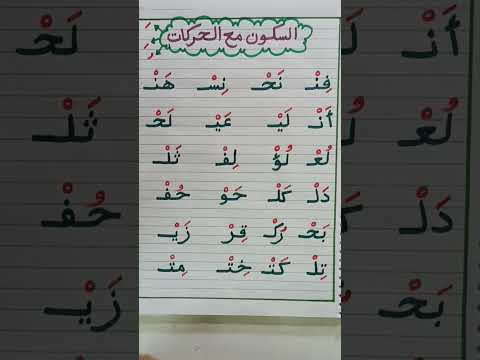 السكون مع الحركات
فِنْـ نَحْـ نِسْـ هَنْـ
أَنْـ لَيْـ عَيْـ لَحْـ
لُعْـ لُؤْ لِفْـ ثَلْـ
دَلْـ كَلْـ حَوْ حُفْـ
بَحْـ رُكْـ قِرْ زَيْـ
تِلْـ كَتْـ خِتْـ مِتْـ